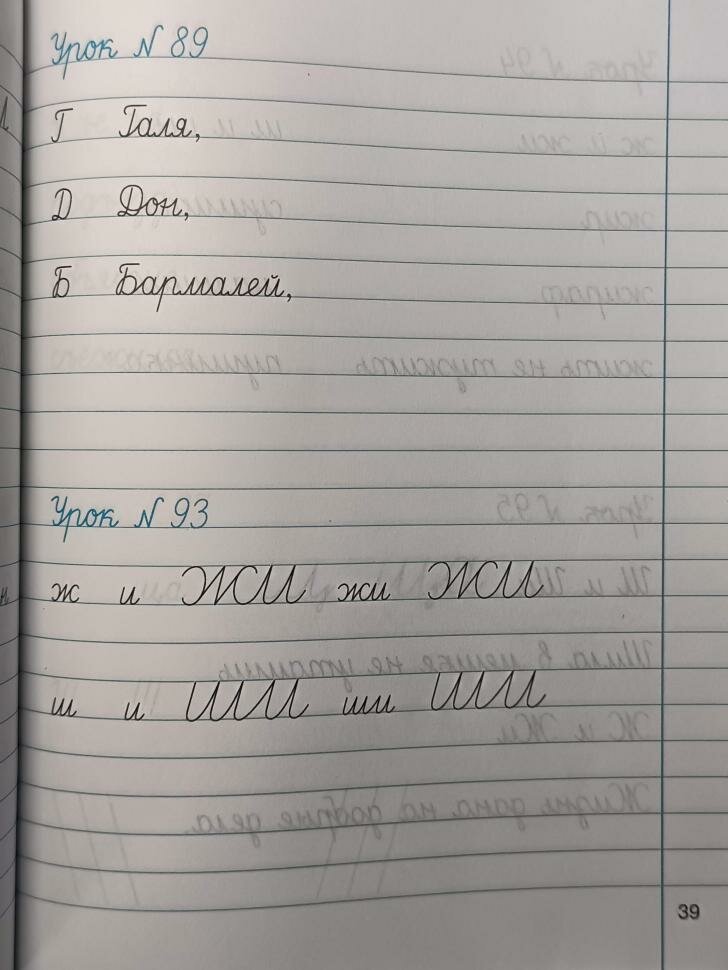 Урок N 89
Г Галя,
Д Дон,
Б Бармалей,
Урок N 93
ж и ЖИ жи ЖИ
ш и ШИ ши ШИ
39